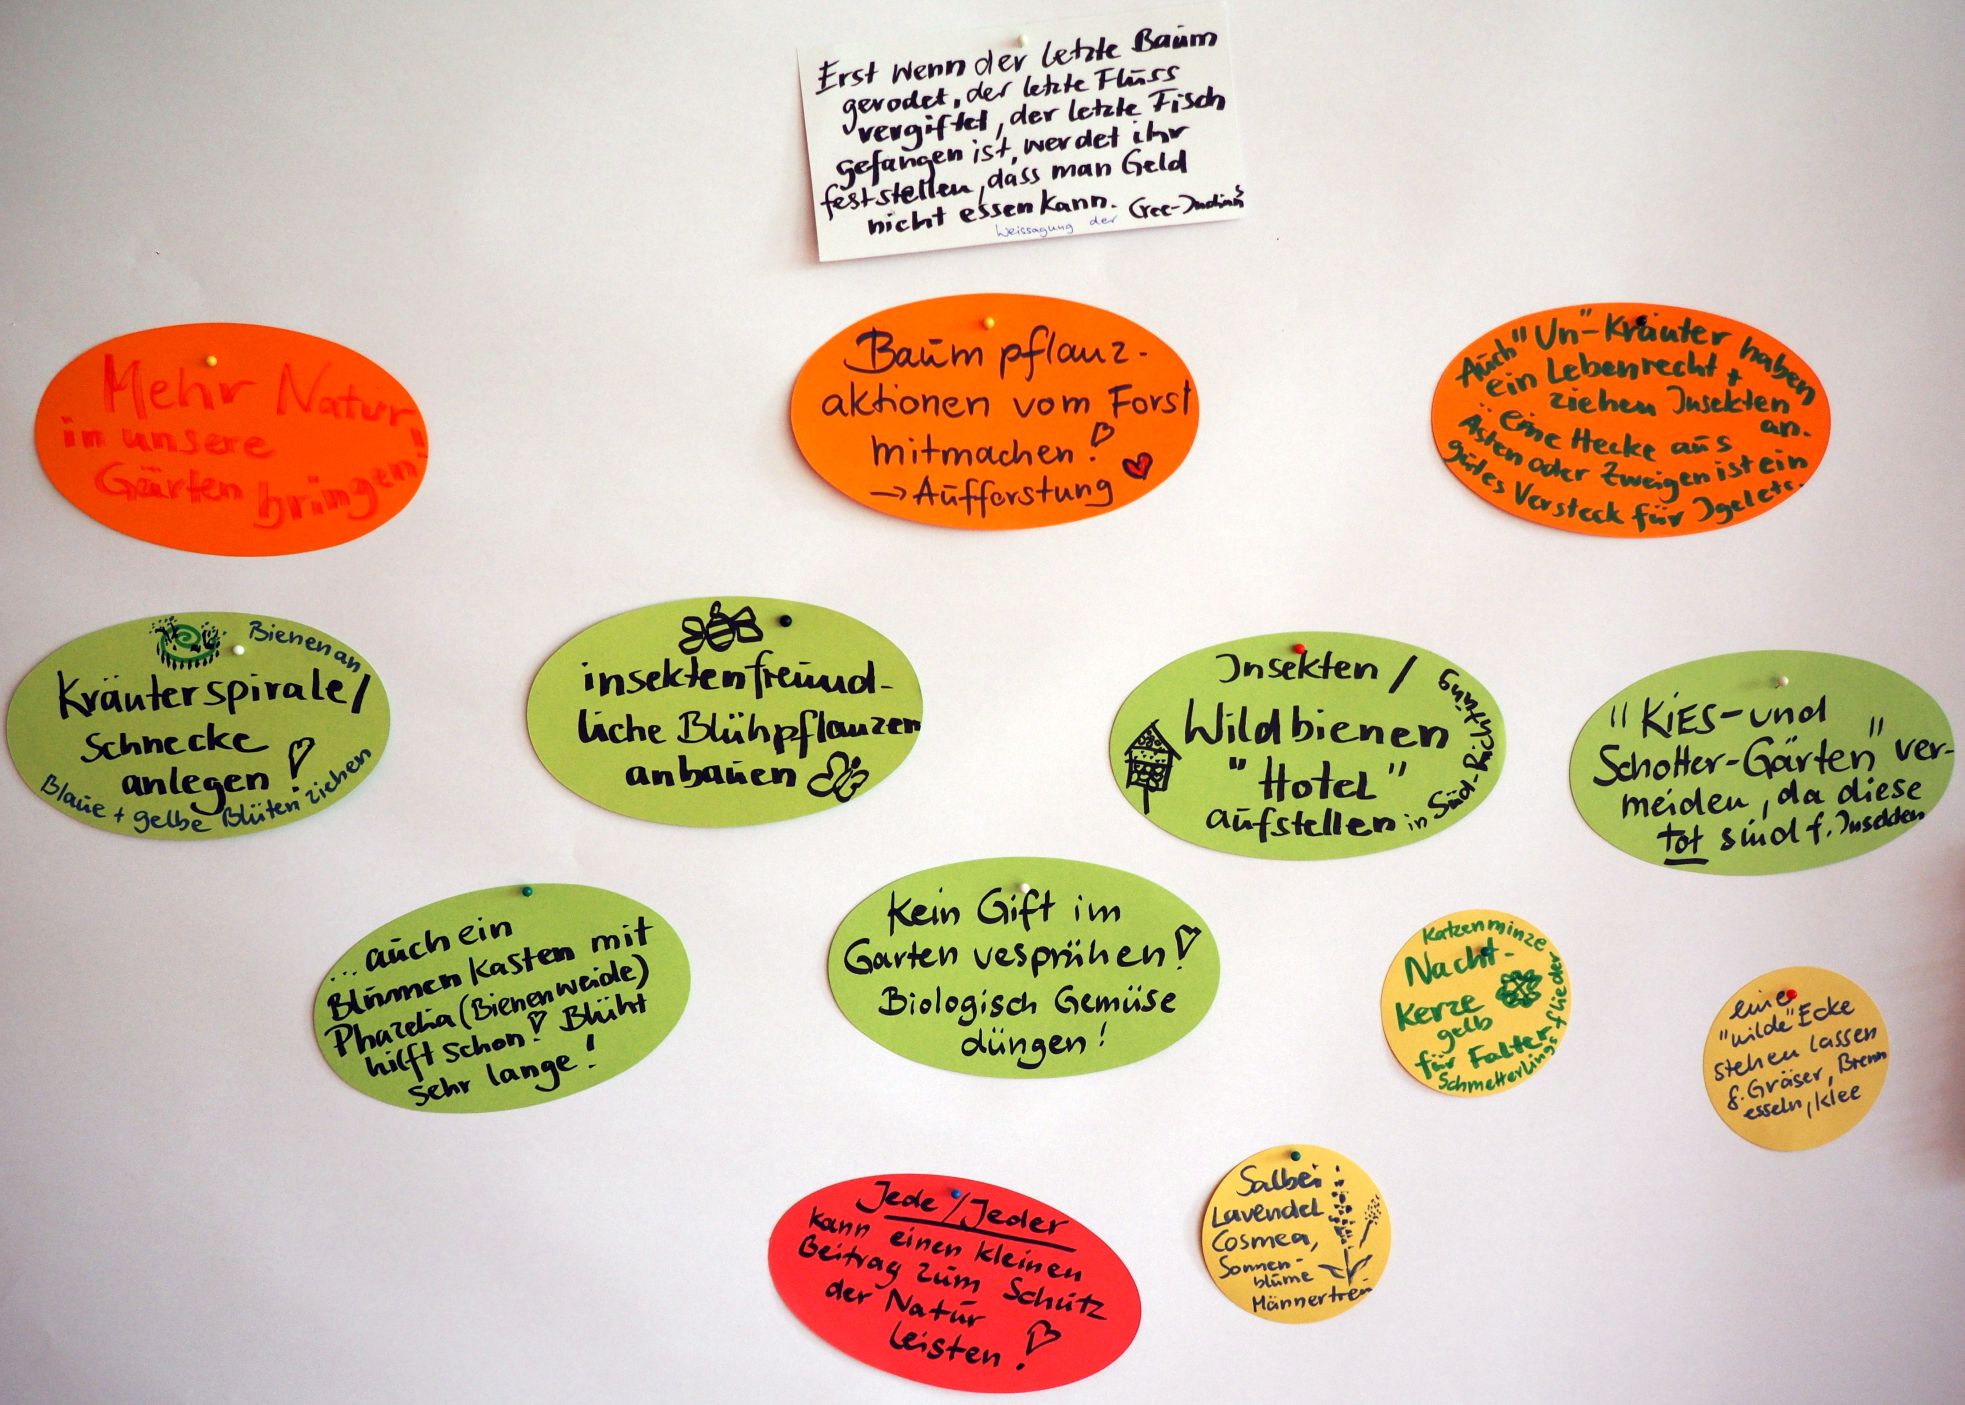 Erst wenn der letzte Baum
gerodet, der letzte Fluss
vergiftet, der letzte Fisch
gefangen ist, werdet ihr
feststellen, dass man Geld
nicht essen kann.
Weissagung der Cree-Indians
Mehr Natur
in unsere
Gärten bringen!
Baum pflanz-
aktionen vom Forst
mitmachen!
→ Aufforstung
Auch "Un"-Kräuter haben
ein Lebenrecht +
ziehen Insekten
an.
.. eine Hecke aus
Ästen oder Zweigen ist ein
gutes Versteck für Igel etc.
Kräuterspirale/
Schnecke
anlegen!
Bienen an
Blaue + gelbe Blüten ziehen
insektenfreund-
liche Blühpflanzen
anbauen
Insekten/
Wildbienen
"Hotel"
aufstellen in Süd-Richtung
"Kies-und
Schotter-Gärten" ver-
meiden, da diese
tot sind f. Insekten
... auch ein
Blumenkasten mit
Phazelia (Bienenweide)
hilft schon! Blüht
sehr lange!
Kein Gift im
Garten vesprühen!
Biologisch Gemüse
düngen!
Katzenminze
Nacht-
kerze
gelb
für Falter
Schmetterlingsflieder
eine
"wilde" Ecke
stehen lassen
f. Gräser, Brenn
esseln, Klee
Salbei
Lavendel
Cosmea,
Sonnen-
blume
Männertreu
Jede/Jeder
kann einen kleinen
Beitrag zum Schutz
der Natur
leisten!